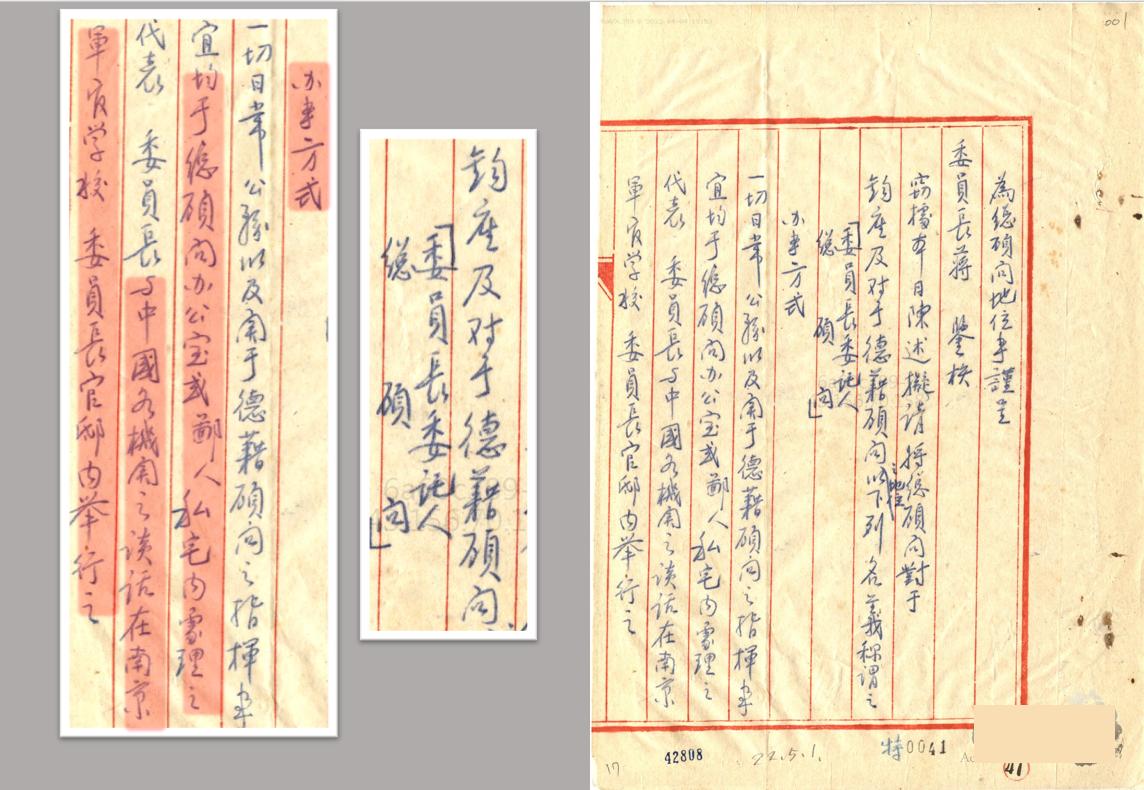 办事方式
一切日常公務以及関于德藉顧问之指揮事
宜均于總顧问办公室或鄙人私宅内處理之
代表 委員長与中國各機関之談話在南京
軍官学校 委員長官邸内举行之
鈞座及对于德藉顧问
「委員長委託人
總 顧 问」
001
為總顧问地位事謹呈
委員長蒋 鑒核
竊據本日陳述擬請将總顧问對于
鈞座及对于德藉顧问之地位以下列名義稱謂之
「委員長委託人
總 顧 问」
办事方式
一切日常公務以及関于德藉顧问之指揮事
宜均于總顧问办公室或鄙人私宅内處理之
代表 委員長与中國各機関之談話在南京
軍官学校 委員長官邸内举行之
17
42808
22.5.1.
特0041
47